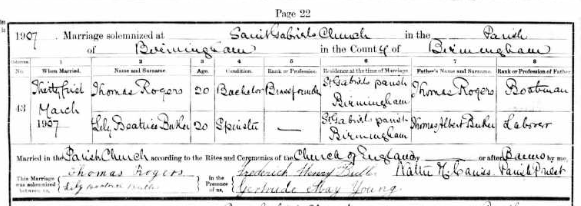 Page 22
1907. Marriage solemnized at Saint Gabriels Church in the Parish
of Birmingham in the County of Birmingham
No. When Married. Name and Surname. Age. Condition. Rank or Profession. Residence at the time of Marriage. Father's Name and Surname. Rank or Profession of Father.
1 2 3 4 5 6 7 8
43 Thirty first March 1907 Thomas Rogers 20 Bachelor Brassfounder St Gabriels parish Birmingham Thomas Rogers Bootman
Lily Beatrice Baker 20 Spinster — St Gabriels parish Birmingham Thomas Albert Baker Laborer
Married in the Parish Church according to the Rites and Ceremonies of the Church of England, or after Banns by me,
This Marriage was solemnized between us, Thomas Rogers in the Presence of us, Frederick Henry Parish Priest
Gertrude May Young